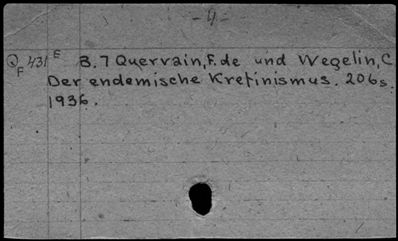 - 4 -
Q 431 E B. 7 Quervain, F. de und Wegelin, C
F Der endemische Kretinismus. 206s.
1936.